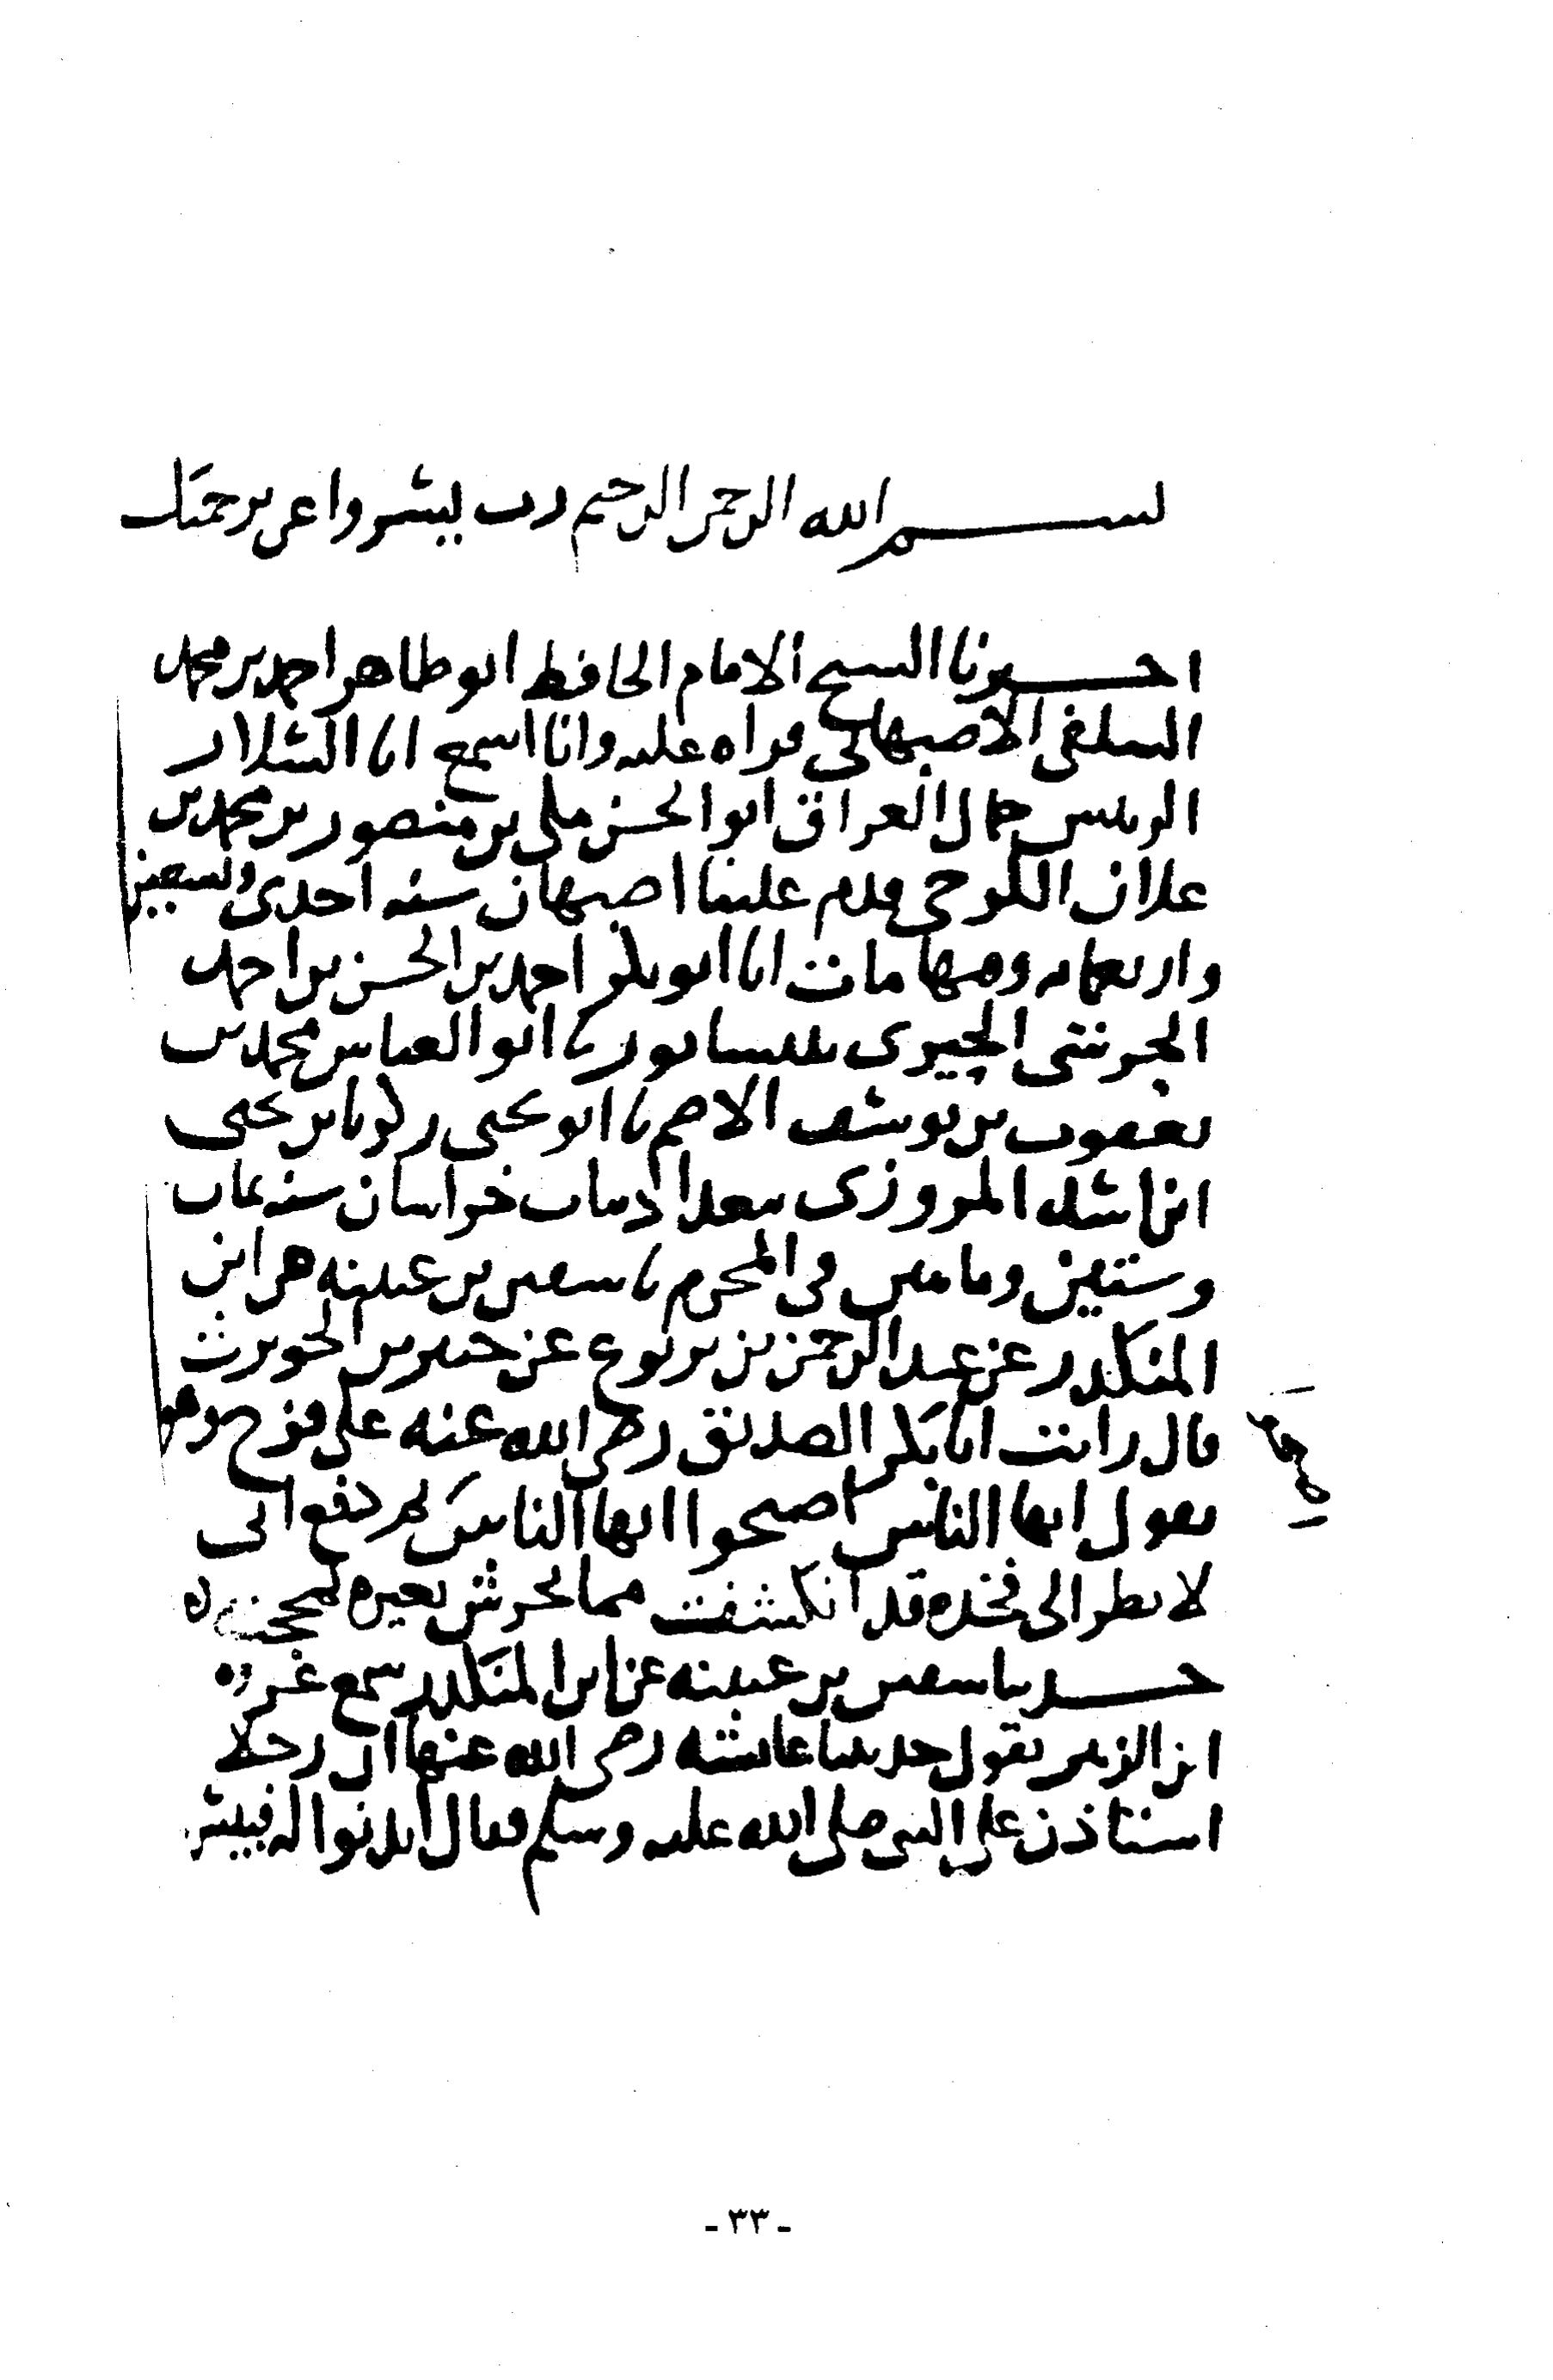 بسم الله الرحمن الرحيم رب يسر واعن برحمتك
اخبرنا الشيخ الامام الحافظ ابو طاهر احمد بن محمد
السلفي الاصبهاني قراه عليه وانا اسمع انا السلار
الرييس جمال العراق ابو الحسن مكي بن منصور بن محمد بن
علان الكرجي قدم علينا اصبهان سنه احدى وتسعين
واربعمايه وفيها مات انا ابو بكر احمد بن الحسن بن احمد
الحرشي الحيري بنيسابور نا ابو العباس محمد بن
يعقوب بن يوسف الاصم نا ابو يحيى زكريا بن يحيى
ابن اسد المروزي ببغداد باب خراسان سنه ثمان
وستين ومايتين في المحرم نا سفين بن عيينه عن ابن
المنكدر عن عبد الرحمن بن يربوع عن جبير بن الحويرث
قال رايت ابا بكر الصديق رضي الله عنه على قزح وهو
يقول ايها الناس اصبحوا ايها الناس ثم دفع اني
لانظر الى فخذه قد انكشفت مما يحرش بعيره بمحجنه
حدثنا سفين بن عيينه عن ابن المنكدر سمع عروه
ابن الزبير يقول حدثتنا عائشه رضي الله عنها ان رجلا
استاذن على النبي صلى الله عليه وسلم فقال ايذنوا له فبيس
- ٣٣ -